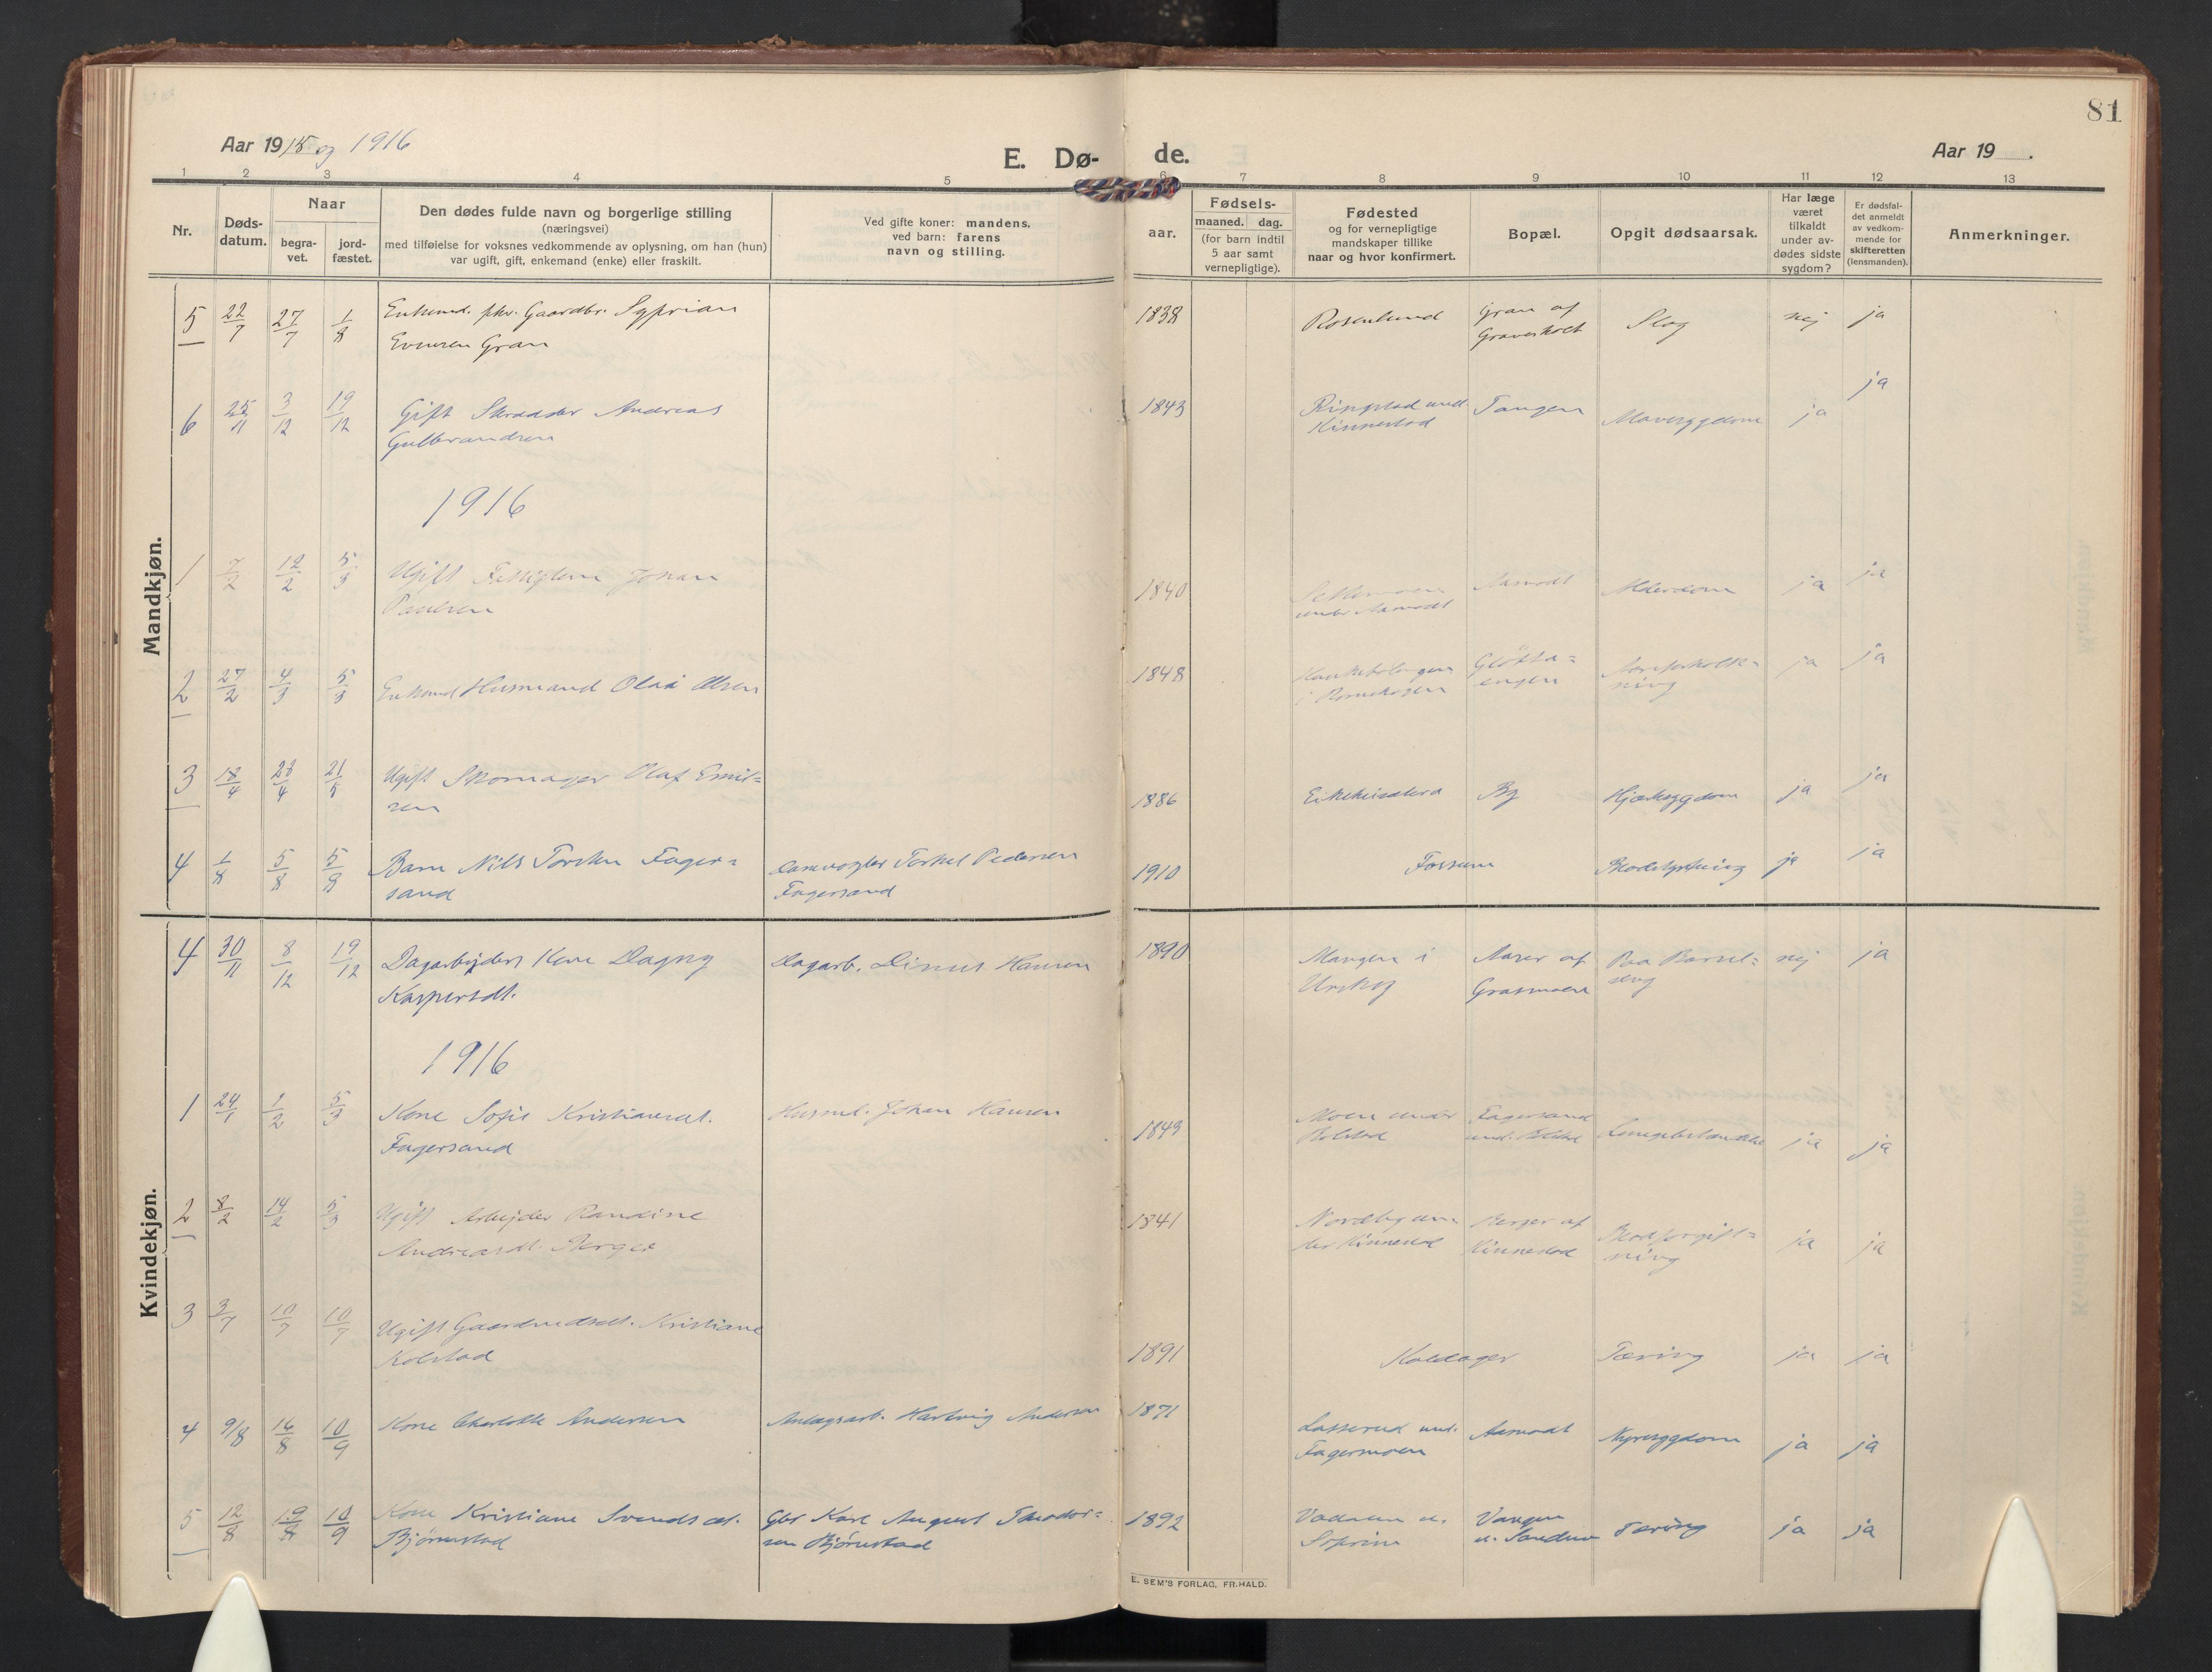 81
Aar 1915 og 1916
E. Dø-
de.
Aar 19 .
1 2 3 4 5 6 7 8 9 10 11 12 13
Nr.
Døds-
datum.
Naar
begra-
vet.
jord-
fæstet.
Den dødes fulde navn og borgerlige stilling
(næringsvei)
med tilføielse for voksnes vedkommende av oplysning, om han (hun)
var ugift, gift, enkemand (enke) eller fraskilt.
Ved gifte koner: mandens,
ved barn: farens
navn og stilling.
aar.
Fødsels-
maaned. dag.
(for barn indtil
5 aar samt
vernepligtige).
Fødested
og for vernepligtige
mandskaper tillike
naar og hvor konfirmert.
Bopæl.
Opgit dødsaarsak.
Har læge
været
tilkaldt
under av-
dødes sidste
sygdom?
Er dødsfal-
det anmeldt
av vedkom-
mende for
skifteretten
(lensmanden).
Anmerkninger.
Mandkjøn.
5 22/7 27/7 1/8 Enkemd. fhv. Gaardbr. Syprian 1838 Rosenlund Gran af Slag nej ja
Evensen Gran Graversholt
6 25/11 3/12 19/12 Gift Skrædder Andreas 1843 Ringstad und. Tangen Mavesygdom ja ja
Gulbrandsen Kinnestad
1916
1 7/2 12/2 5/3 Ugift Fattiglem Johan 1840 Aamodt Alderdom ja ja
Paulsen under Aamodt
2 27/2 4/3 5/3 Enkemd Husmand Olai Olsen 1848 ja ja
3 18/4 28/4 21/5 Ugift Skomager Olaf Emil=
sen 1886 By Hjertesygdom ja ja
4 1/8 5/8 5/8 Barn Nils Torsten Fager= Damvogter Torkel Pedersen 1910 Fossum ja ja
sand Fagersand
Kvindekjøn.
4 30/11 8/12 19/12 Dagarbejders Kone Dagny Dagarb. Linus Hansen 1890 Mangen i Aaser af Paa Barsel= nej ja
Kaspersdt. Urskog Grasmoen seng
1916
1 24/1 1/2 5/3 Kone Sofie Kristiansdt. Husmd. Johan Hansen 1849 Moen under Fagersand ja ja
Fagersand Bolstad
2 8/2 14/2 5/3 Ugift Arbejder Randine 1841 Nordby un= Berger af Blodforgift= ja ja
Andreasdt. Berger der Kinnestad Kinnestad ning
3 3/7 10/7 10/7 Ugift Gaardmdsdt. Kristiane
Kolstad 1891 Kaldager Tæring ja ja
4 9/8 16/8 10/9 Kone Charlotte Andersen Anlægsarb. Hartvig Andersen 1871 Lasserud und. Aamodt Nyresygdom ja ja
Fagermoen
5 12/8 19/8 10/9 Kone Kristiane Svendsdt. Gbr Karl August Theodor= 1892 Vangen Tæring ja ja
Bjørnstad sen Bjørnstad
E. SEM'S FORLAG, FR.HALD.